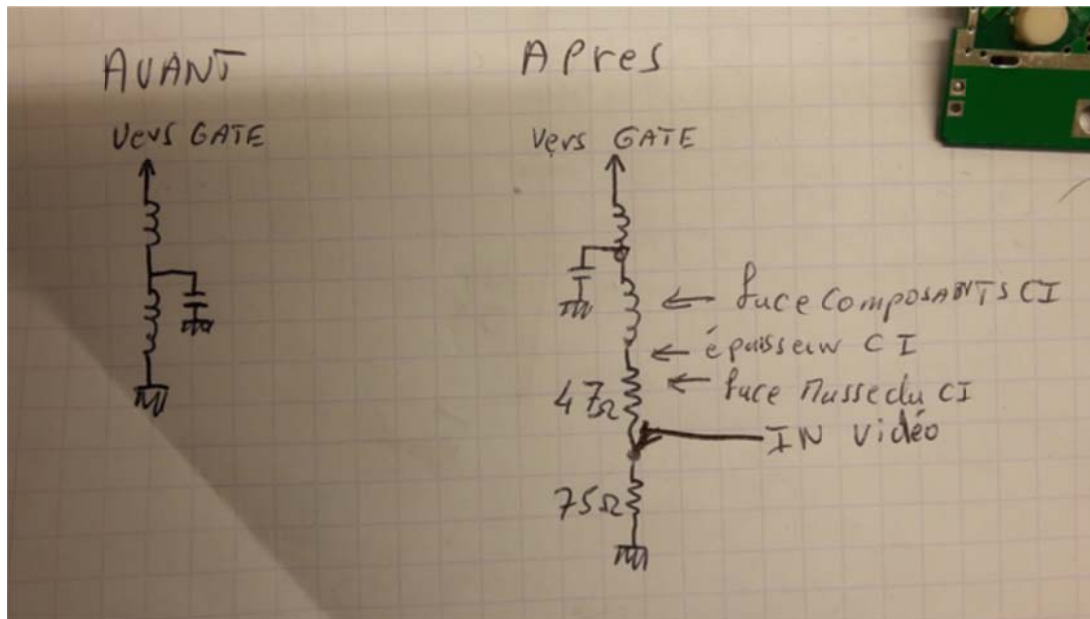 AVANT
Vers GATE
Après
Vers GATE
← face COMPOSANTS CI
← épaisseur CI
← face Masse du CI
47Ω
IN Vidéo
75Ω